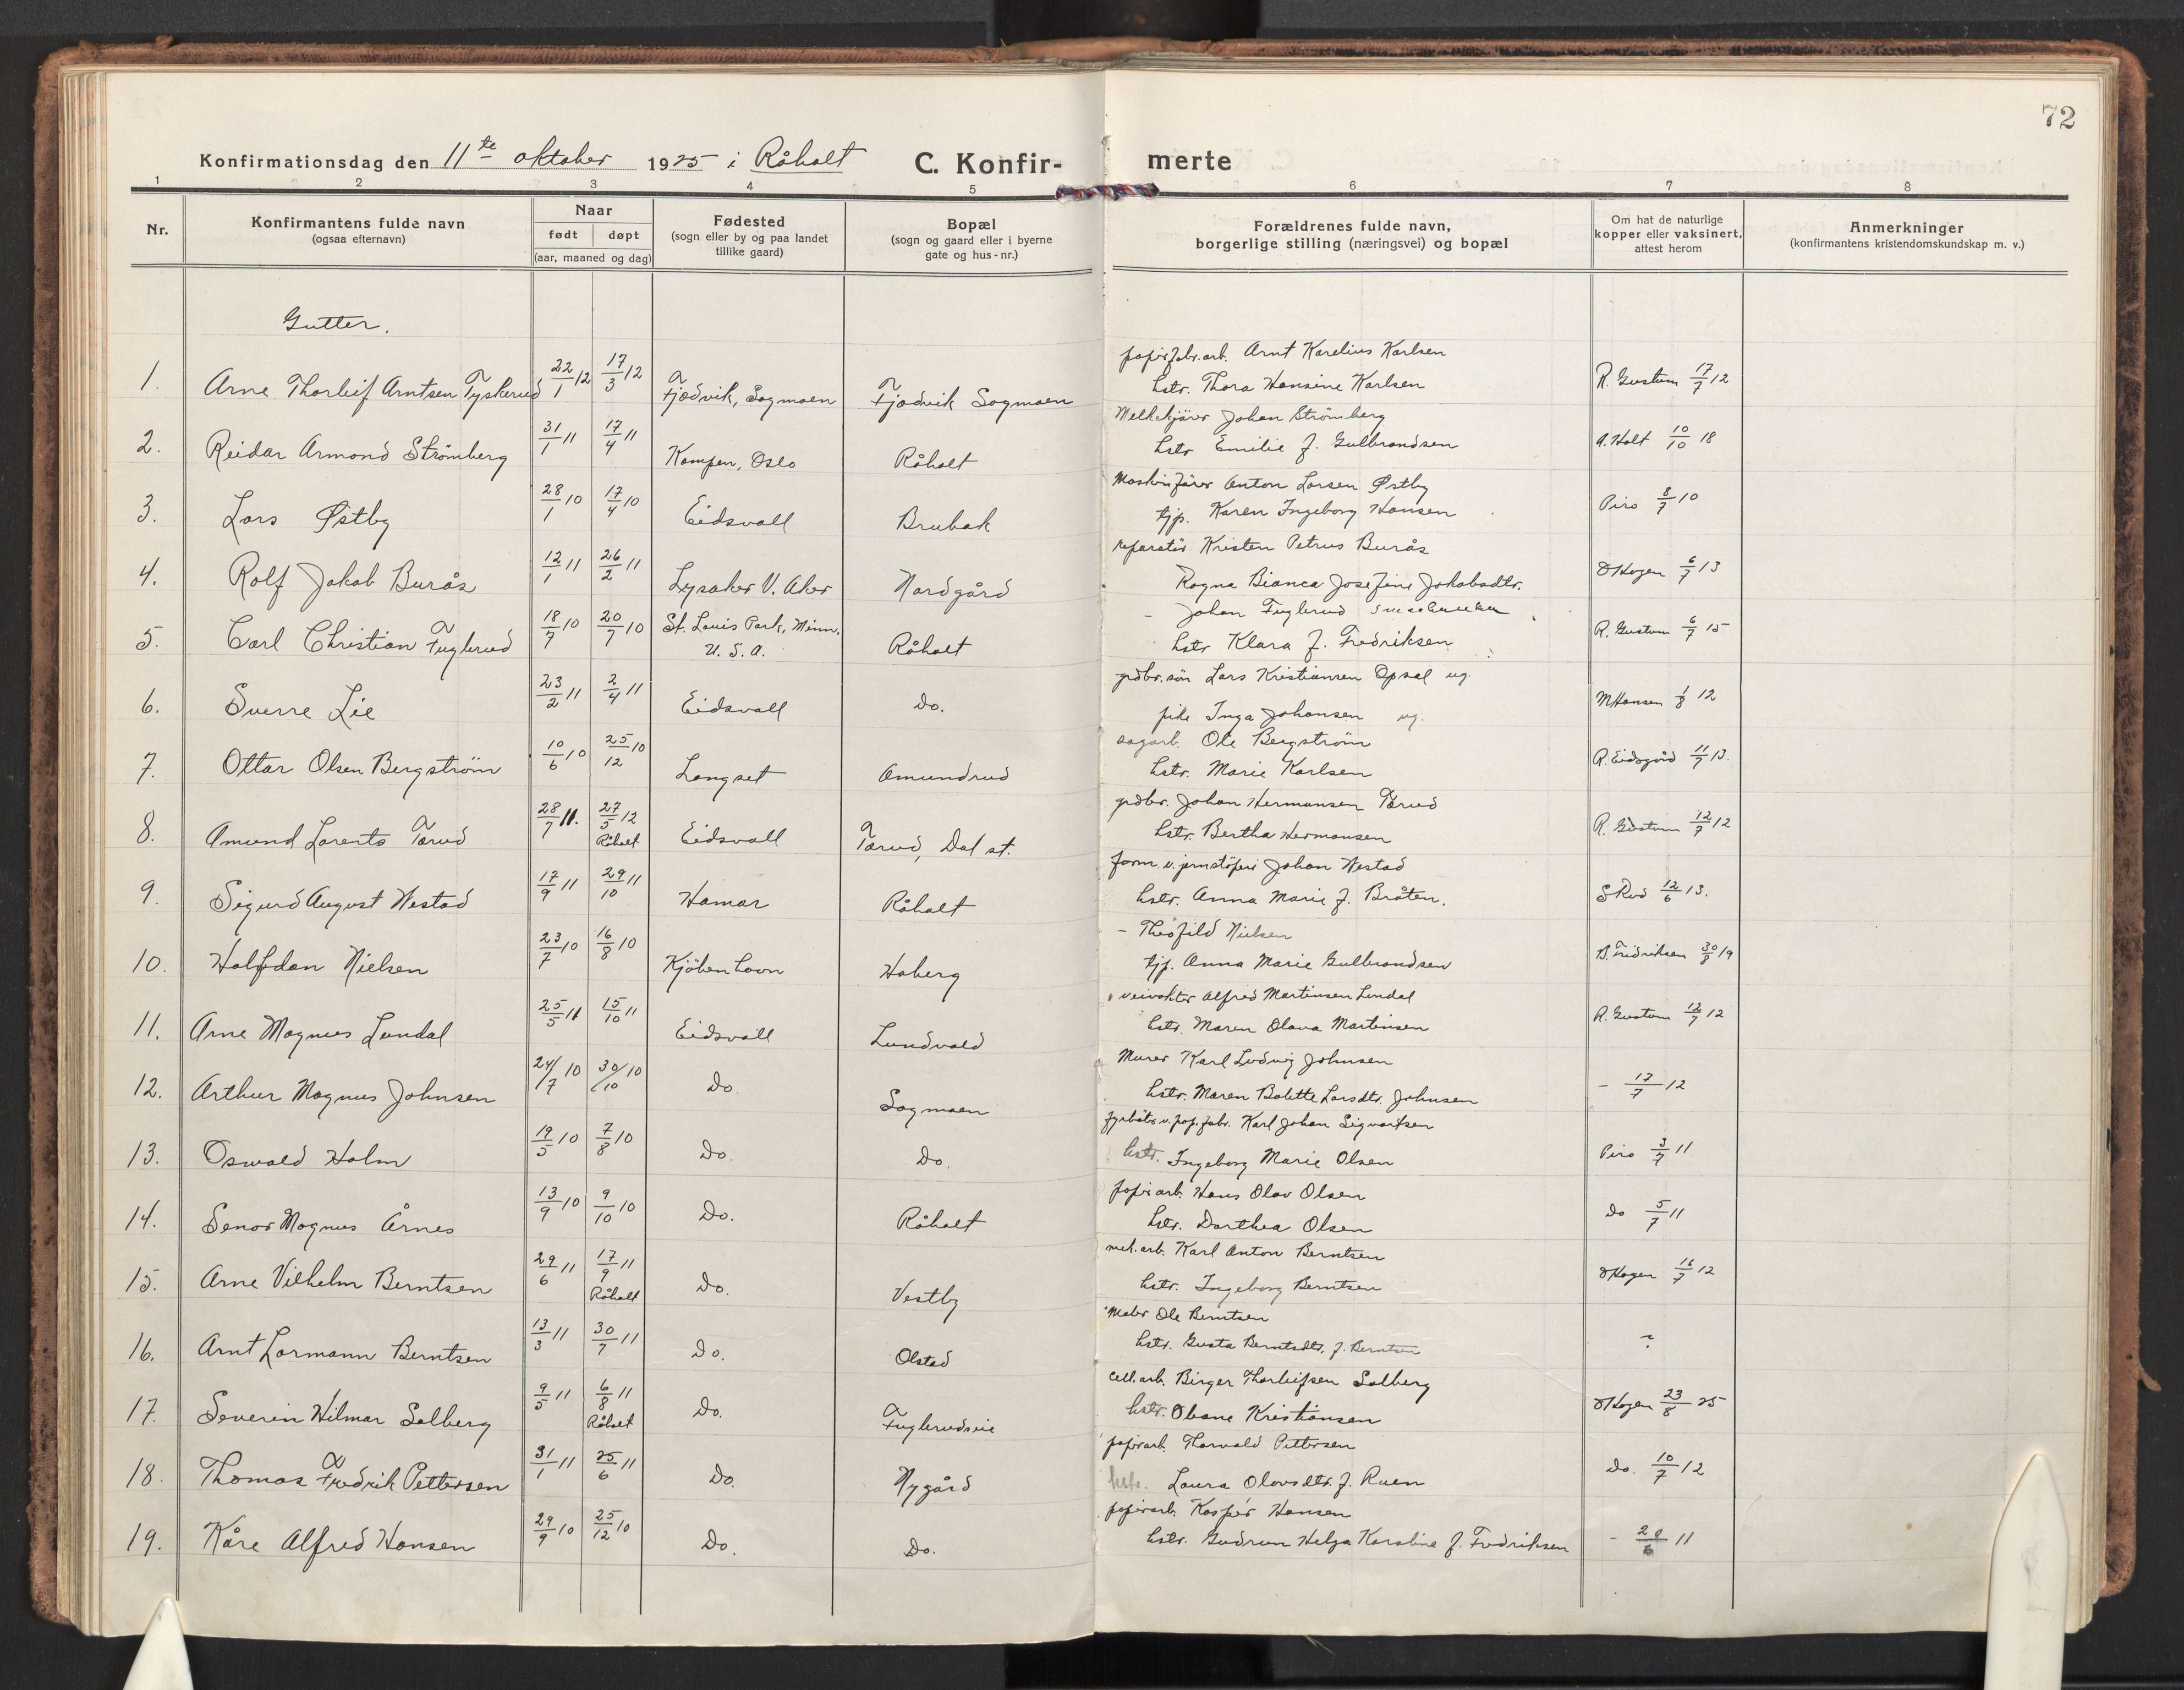 72
Konfirmationsdag den 11te oktober 1925 i Råholt C. Konfir- merte
1 2 3 4 5 6 7 8
Nr. Konfirmantens fulde navn (ogsaa efternavn) Naar født døpt (aar, maaned og dag) Fødested (sogn eller by og paa landet tillike gaard) Bopæl (sogn og gaard eller i byerne gate og hus-nr.) Forældrenes fulde navn, borgerlige stilling (næringsvei) og bopæl Om hat de naturlige kopper eller vaksinert, attest herom Anmerkninger (konfirmantens kristendomskundskap m. v.)
Gutter.
papirfabr.arb. Arnt Karelius Karlsen
1. Arne Thorleif Arntsen Tyskerud 22/1 12 17/3 12 Fjødvik, Sagmoen Fjødvik Sagmoen hstr. Thora Hansine Karlsen R. Gustum 17/7 12
Melkekjörer Johan Strömberg
2. Reidar Armond Strömberg 31/1 11 17/4 11 Kampen, Oslo Råholt hstr Emilie f. Gulbrandsen A. Holt 10/10 18
Maskinfärer Anton Larsen Østby
3. Lars Østby 28/1 10 17/4 10 Eidsvoll Brubak tjp. Karen Ingeborg Hansen Piro 8/7 10
reparatör Kristen Petrus Burås
4. Rolf Jakob Burås 12/1 11 26/2 11 Lysaker V. Aker Nordgård Ragna Bianca Josefine Jakobsdtr. O Hogen 6/7 13
- Johan Fuglerud
5. Carl Christian Fuglerud 18/7 10 20/7 10 St. Louis Park, Minn. U. S. A. Råholt hstr Klara f. Fredriksen R. Gustum 6/7 15
grdbr. sön Lars Kristiansen Opsal ug.
6. Sverre Lie 23/2 11 2/4 11 Eidsvoll Do. pike Inga Johansen ug. M Hansen 1/8 12
sagarb. Ole Bergström
7. Ottar Olsen Bergström 10/6 10 25/12 10 Langset Amundrud hstr. Marie Karlsen R. Eidsgård 11/7 13.
grdbr. Johan Hermansen Tærud
8. Amund Lorents Tærud 28/7 11. 27/5 12 Råholt Eidsvoll Tærud, Dal st. hstr. Bertha Hermansen R. Gustum 12/7 12
form. v. jernstöperi Johan Nestad
9. Sigurd August Nestad 17/9 11 29/10 11 Hamar Råholt hstr. Anna Marie f. Bråten. S Rud 12/6 13.
- Theofild Nielsen
10. Halfdan Nielsen 23/7 10 16/8 10 Kjöbenhavn Haberg tjp. Anna Marie Gulbrandsen B. Fridriksen 30/8 19
veivokter Alfred Martinsen Lundal
11. Arne Magnus Lundal 25/5 11 15/10 11 Eidsvoll Lundvald hstr. Maren Olava Martinsen R. Gustum 12/7 12
Murer Karl Ludvig Johnsen
12. Arthur Magnus Johnsen 24/7 10 30/10 10 Do. Sagmoen hstr. Maren Bolette Larsdtr. Johnsen - 17/7 12
fyrböter v. pap.fabr. Karl Johan Sigvartsen
13. Oswald Holm 19/5 10 7/8 10 Do. Do. hstr. Ingeborg Marie Olsen Piro 3/7 11
papirarb. Hans Olav Olsen
14. Senor Magnus Årnes 13/9 10 9/10 10 Do. Råholt hstr. Dorthea Olsen Do 5/7 11
mek. arb. Karl Anton Berntsen
15. Arne Vilhelm Berntsen 29/6 11 17/9 11 Råholt Do. Vestby hstr. Ingeborg Berntsen O Hogen 16/7 12
Maler Ole Berntsen
16. Arnt Lormann Berntsen 13/3 11 30/7 11 Do. Olstad hstr. Gusta Berntsdtr. f. Berntsen ?
cell. arb. Birger Thorleifsen Solberg
17. Severin Hilmar Solberg 9/5 11 6/8 11 Råholt Do. Fuglerudseie hstr. Obane Kristiansen O Hogen 23/8 25
papirarb. Thorvald Pettersen
18. Thomas Fredrik Pettersen 31/1 11 25/6 11 Do. Nygård hstr. Laura Olavsdtr. f. Ruen Do. 10/7 12
papirarb. Kasper Hansen
19. Kåre Alfred Hansen 29/9 10 25/12 10 Do. Do. hstr. Gudrun Helga Karoline f. Fredriksen - 20/6 11